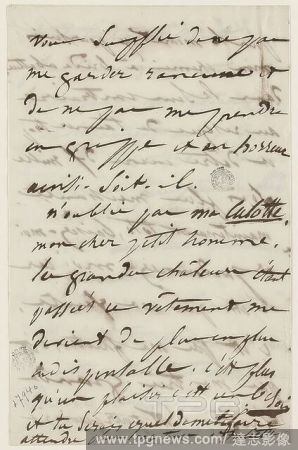 vous supplie de ne pas
me garder rancune et
de ne pas me prendre
en grippe et en horreur
ainsi-soit-il.
n'oublie pas ma culotte,
mon cher petit homme.
les grandes chaleurs étant
passées ce vêtement me
devient de plus en plus
indispensable. c'est plus
qu'un plaisir c'est un besoin
et tu serais cruel de me le faire
attendre
17946
TPG
www.tpgnews.com/達志影像